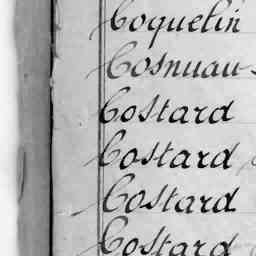 Coquelin
Cosnuau
Costard
Costard
Costard
Costard